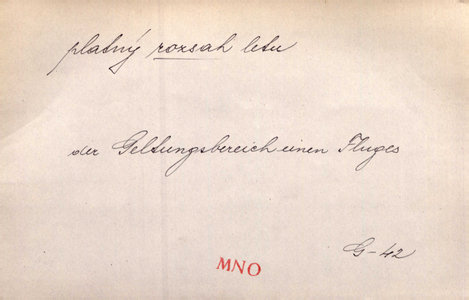 platný rozsah letu
der Geltungsbereich einen Fluges
G-42
MNO